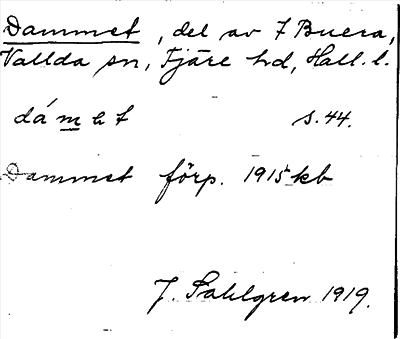 Dammet, del av 7 Buera,
Vallda sn, Fjäre hd, Hall. l.
dámet s. 44.
Dammet förp. 1915 kb
J. Sahlgren 1919.